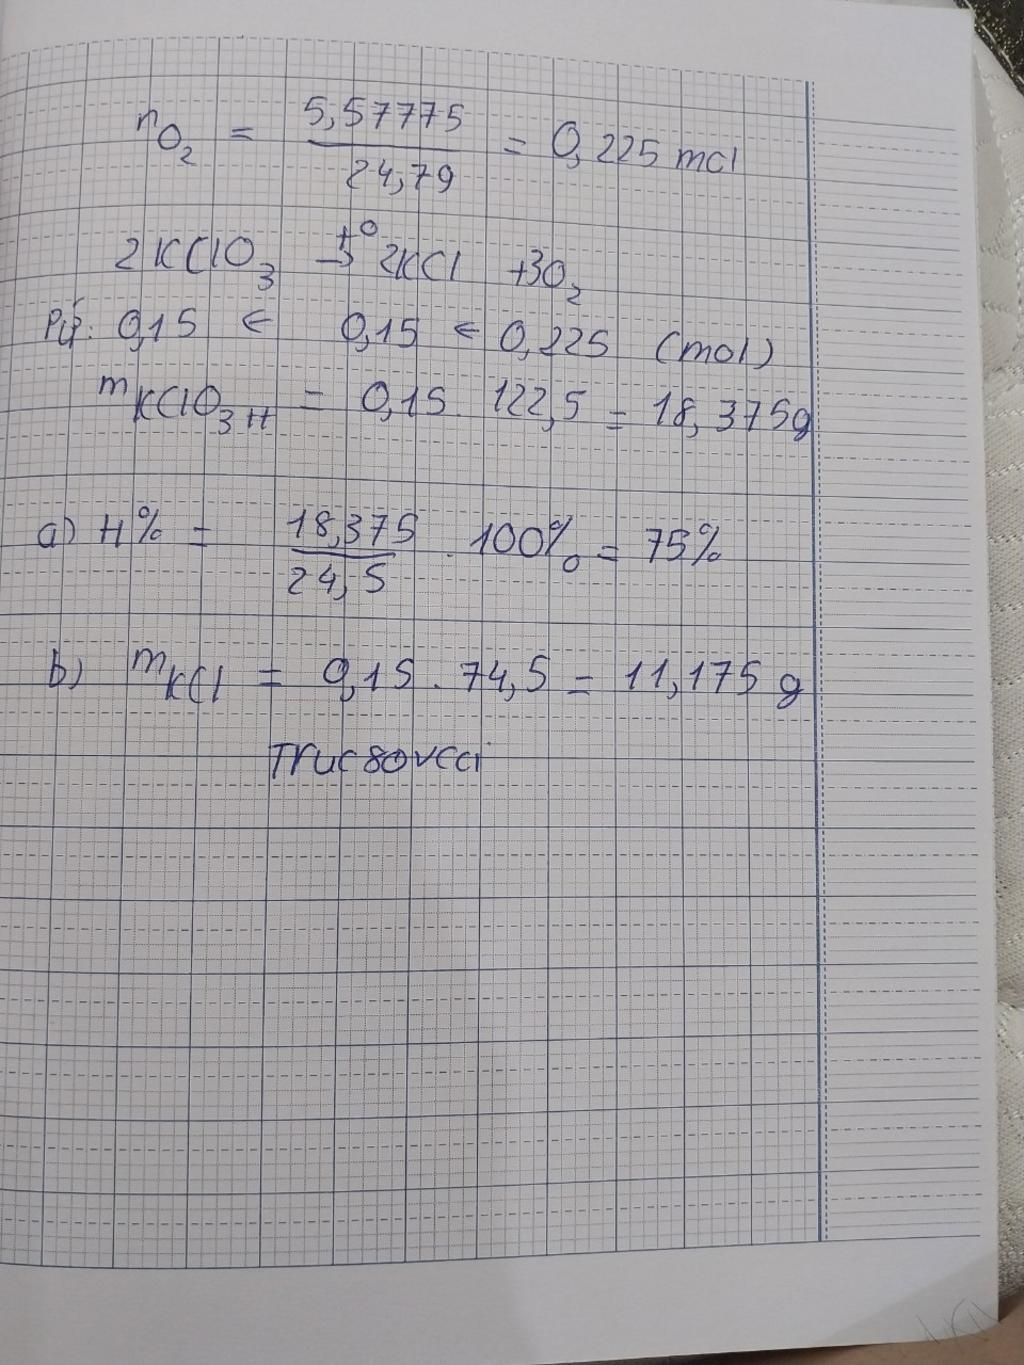 nO₂ = 5,57775 / 24,79 = 0,225 mol
2KClO₃ →t° 2KCl + 3O₂
Pứ: 0,15 ← 0,15 ← 0,225 (mol)
mKClO₃ H = 0,15 . 122,5 = 18,375g
a) H% = 18,375 / 24,5 . 100% = 75%
b) mKCl = 0,15 . 74,5 = 11,175 g